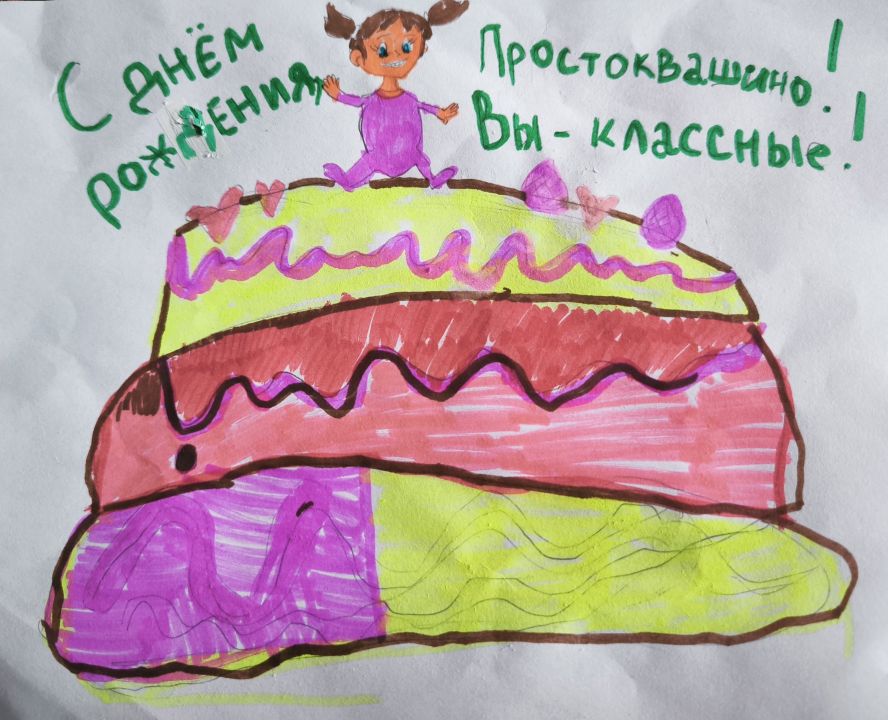 С ДНЁМ
РОЖДЕНИЯ,
Простоквашино!
Вы - классные!